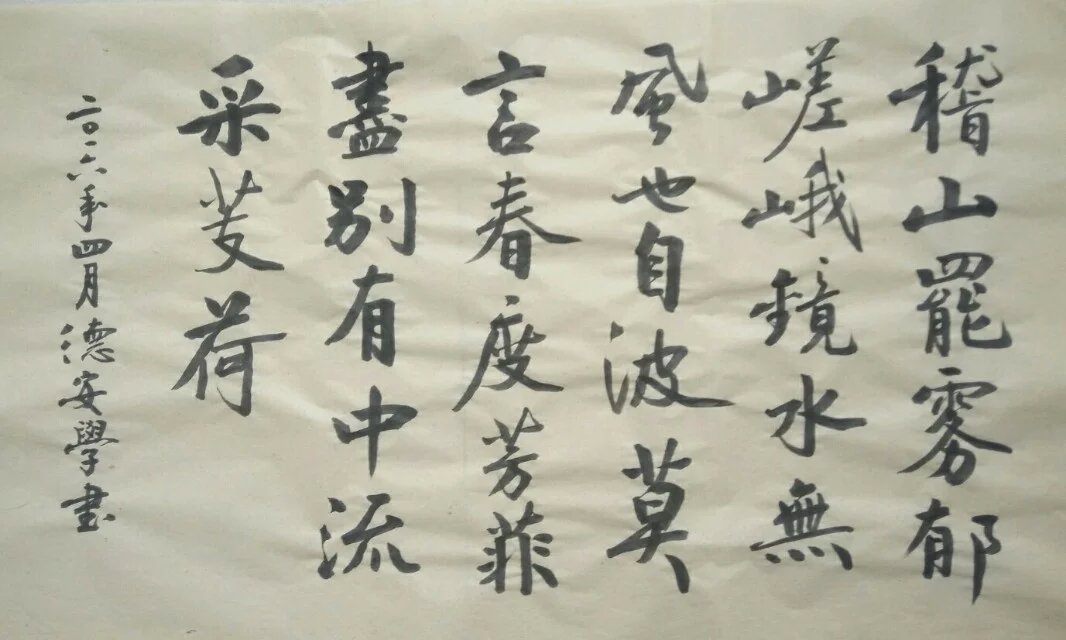 稽山罷雾郁
嵯峨鏡水無
風也自波莫
言春度芳菲
盡别有中流
采芰荷
二〇一六年四月德安學書